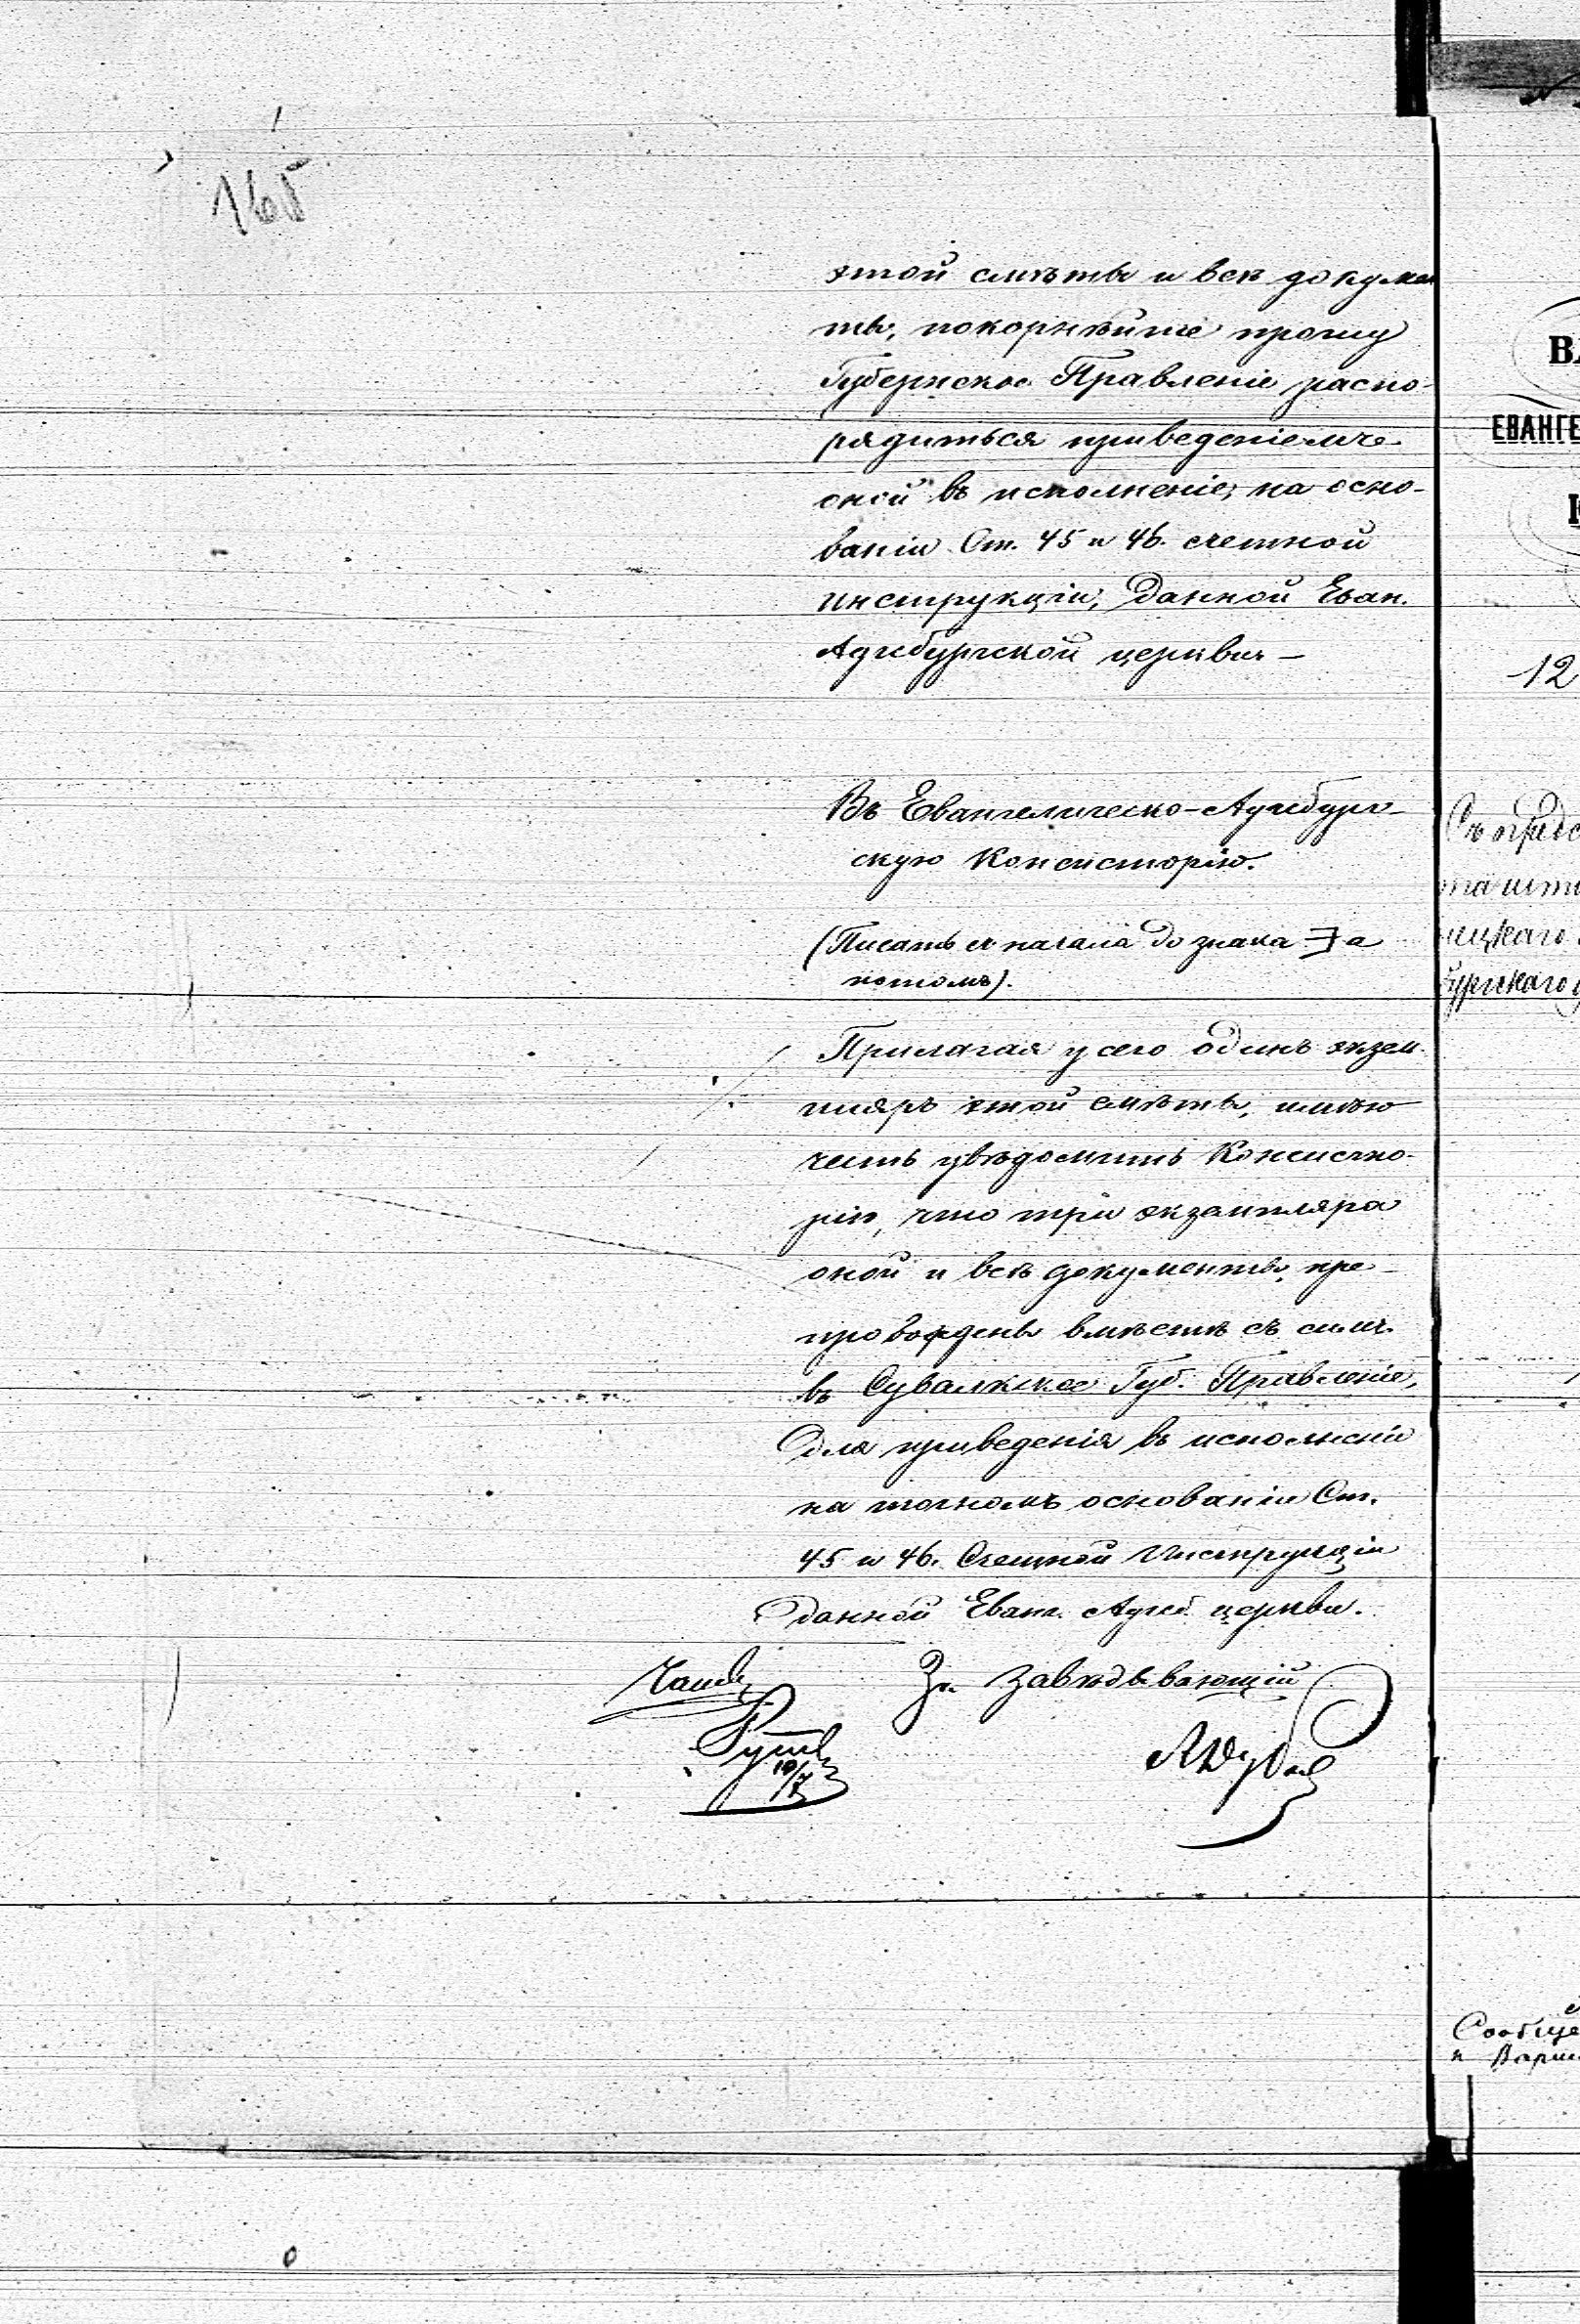 165
этой смѣты и всѣ докумен
ты, покорнѣйше прошу
Губернское Правленіе распо-
рядиться приведеніемъ
оной въ исполненіе, на осно-
ваніи Ст. 45 и 46. счетной
инструкціи, данной Еван.
Аугсбургской церкви. —
Въ Евангелическо-Аугсбург-
скую Консисторію.
(Писать съ начала до знака a
потомъ).
Прилагая у сего одинъ экзем-
пляръ этой смѣты, имѣю
честь увѣдомить Консисто-
рію, что три экземпляра
оной и всѣ документы, пре-
провождены вмѣстѣ съ симъ
въ Сувалкское Губ. Правленіе,
для приведенія въ исполненіе
на точномъ основаніи Ст.
45 и 46. Счетной Инструкціи
данной Еванг. Аугсб. церкви.
За Завѣдывающій
ВА
ЕВАНГЕ
К
12
Съ предс
бургскаго
Сообще